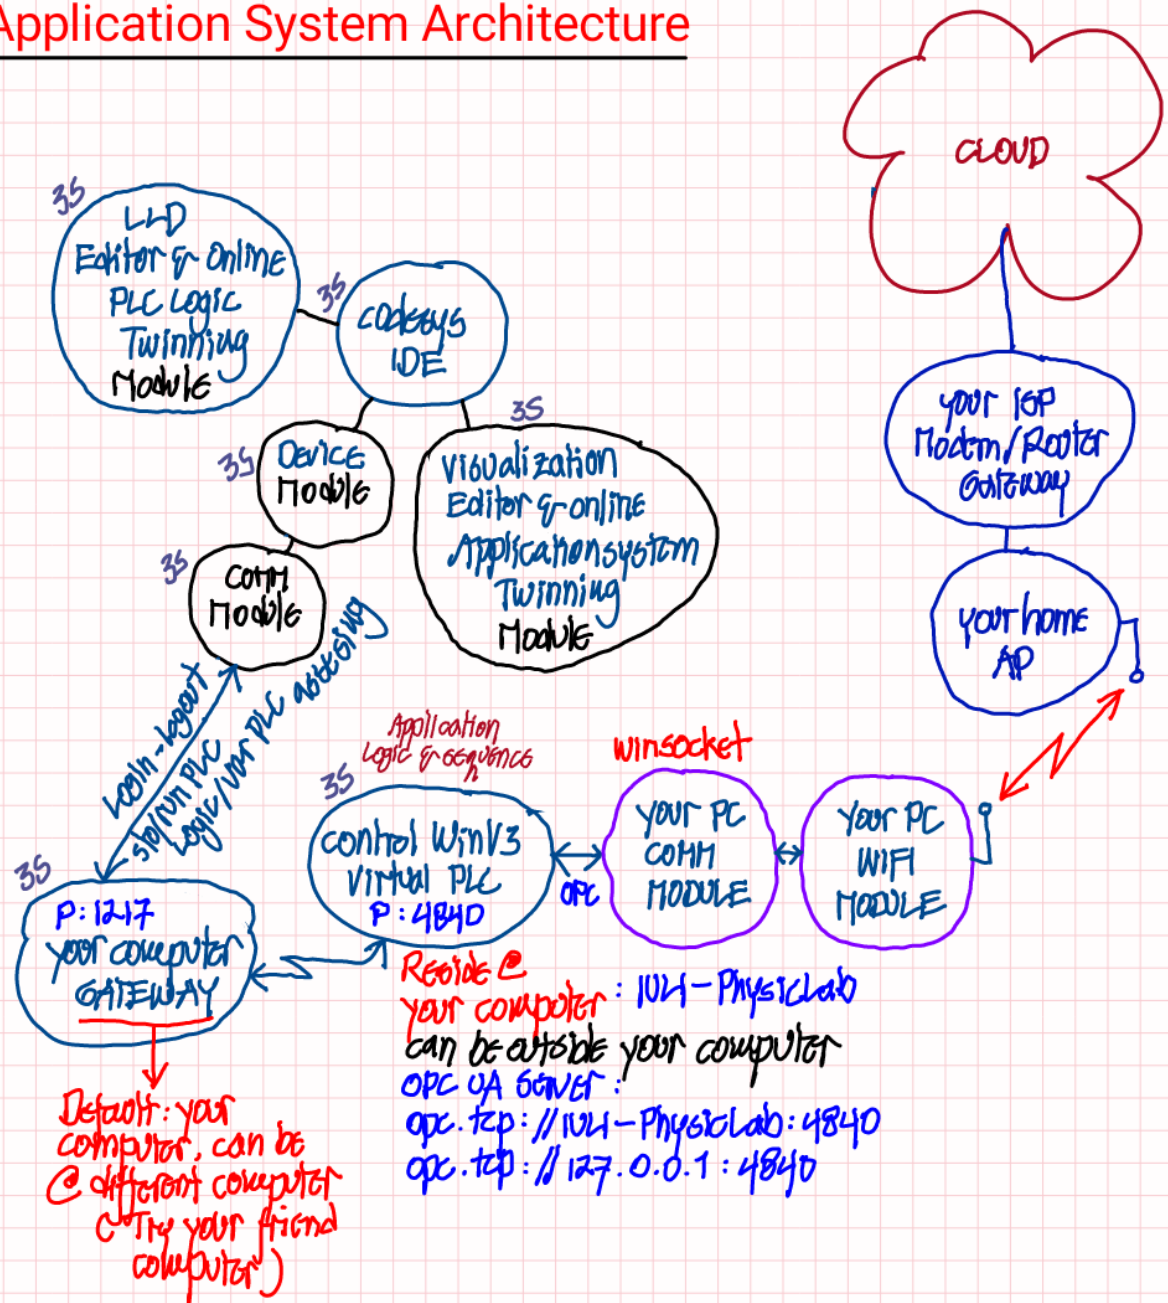 Application System Architecture
CLOUD
3S
LLD
Editor & Online
PLC Logic
Twinning
Module
3S
Codesys
IDE
3S
Device
Module
3S
Visualization
Editor & online
Application system
Twinning
Module
3S
COMM
Module
your ISP
Modem/Router
Gateway
your home
AP
Login-logout
sto/run PLC
Logic/var PLC
Application
Logic & sequence
3S
Control WinV3
Virtual PLC
P:4840
OPC
winsocket
your PC
COMM
MODULE
Your PC
WIFI
MODULE
3S
P:1217
your computer
GATEWAY
Reside @
your computer : IULI-PhysicLab
can be outside your computer
OPC UA Server :
opc.tcp://IULI-PhysicLab:4840
opc.tcp://127.0.0.1:4840
Default: your
computer, can be
@ different computer
(Try your friend
computer)